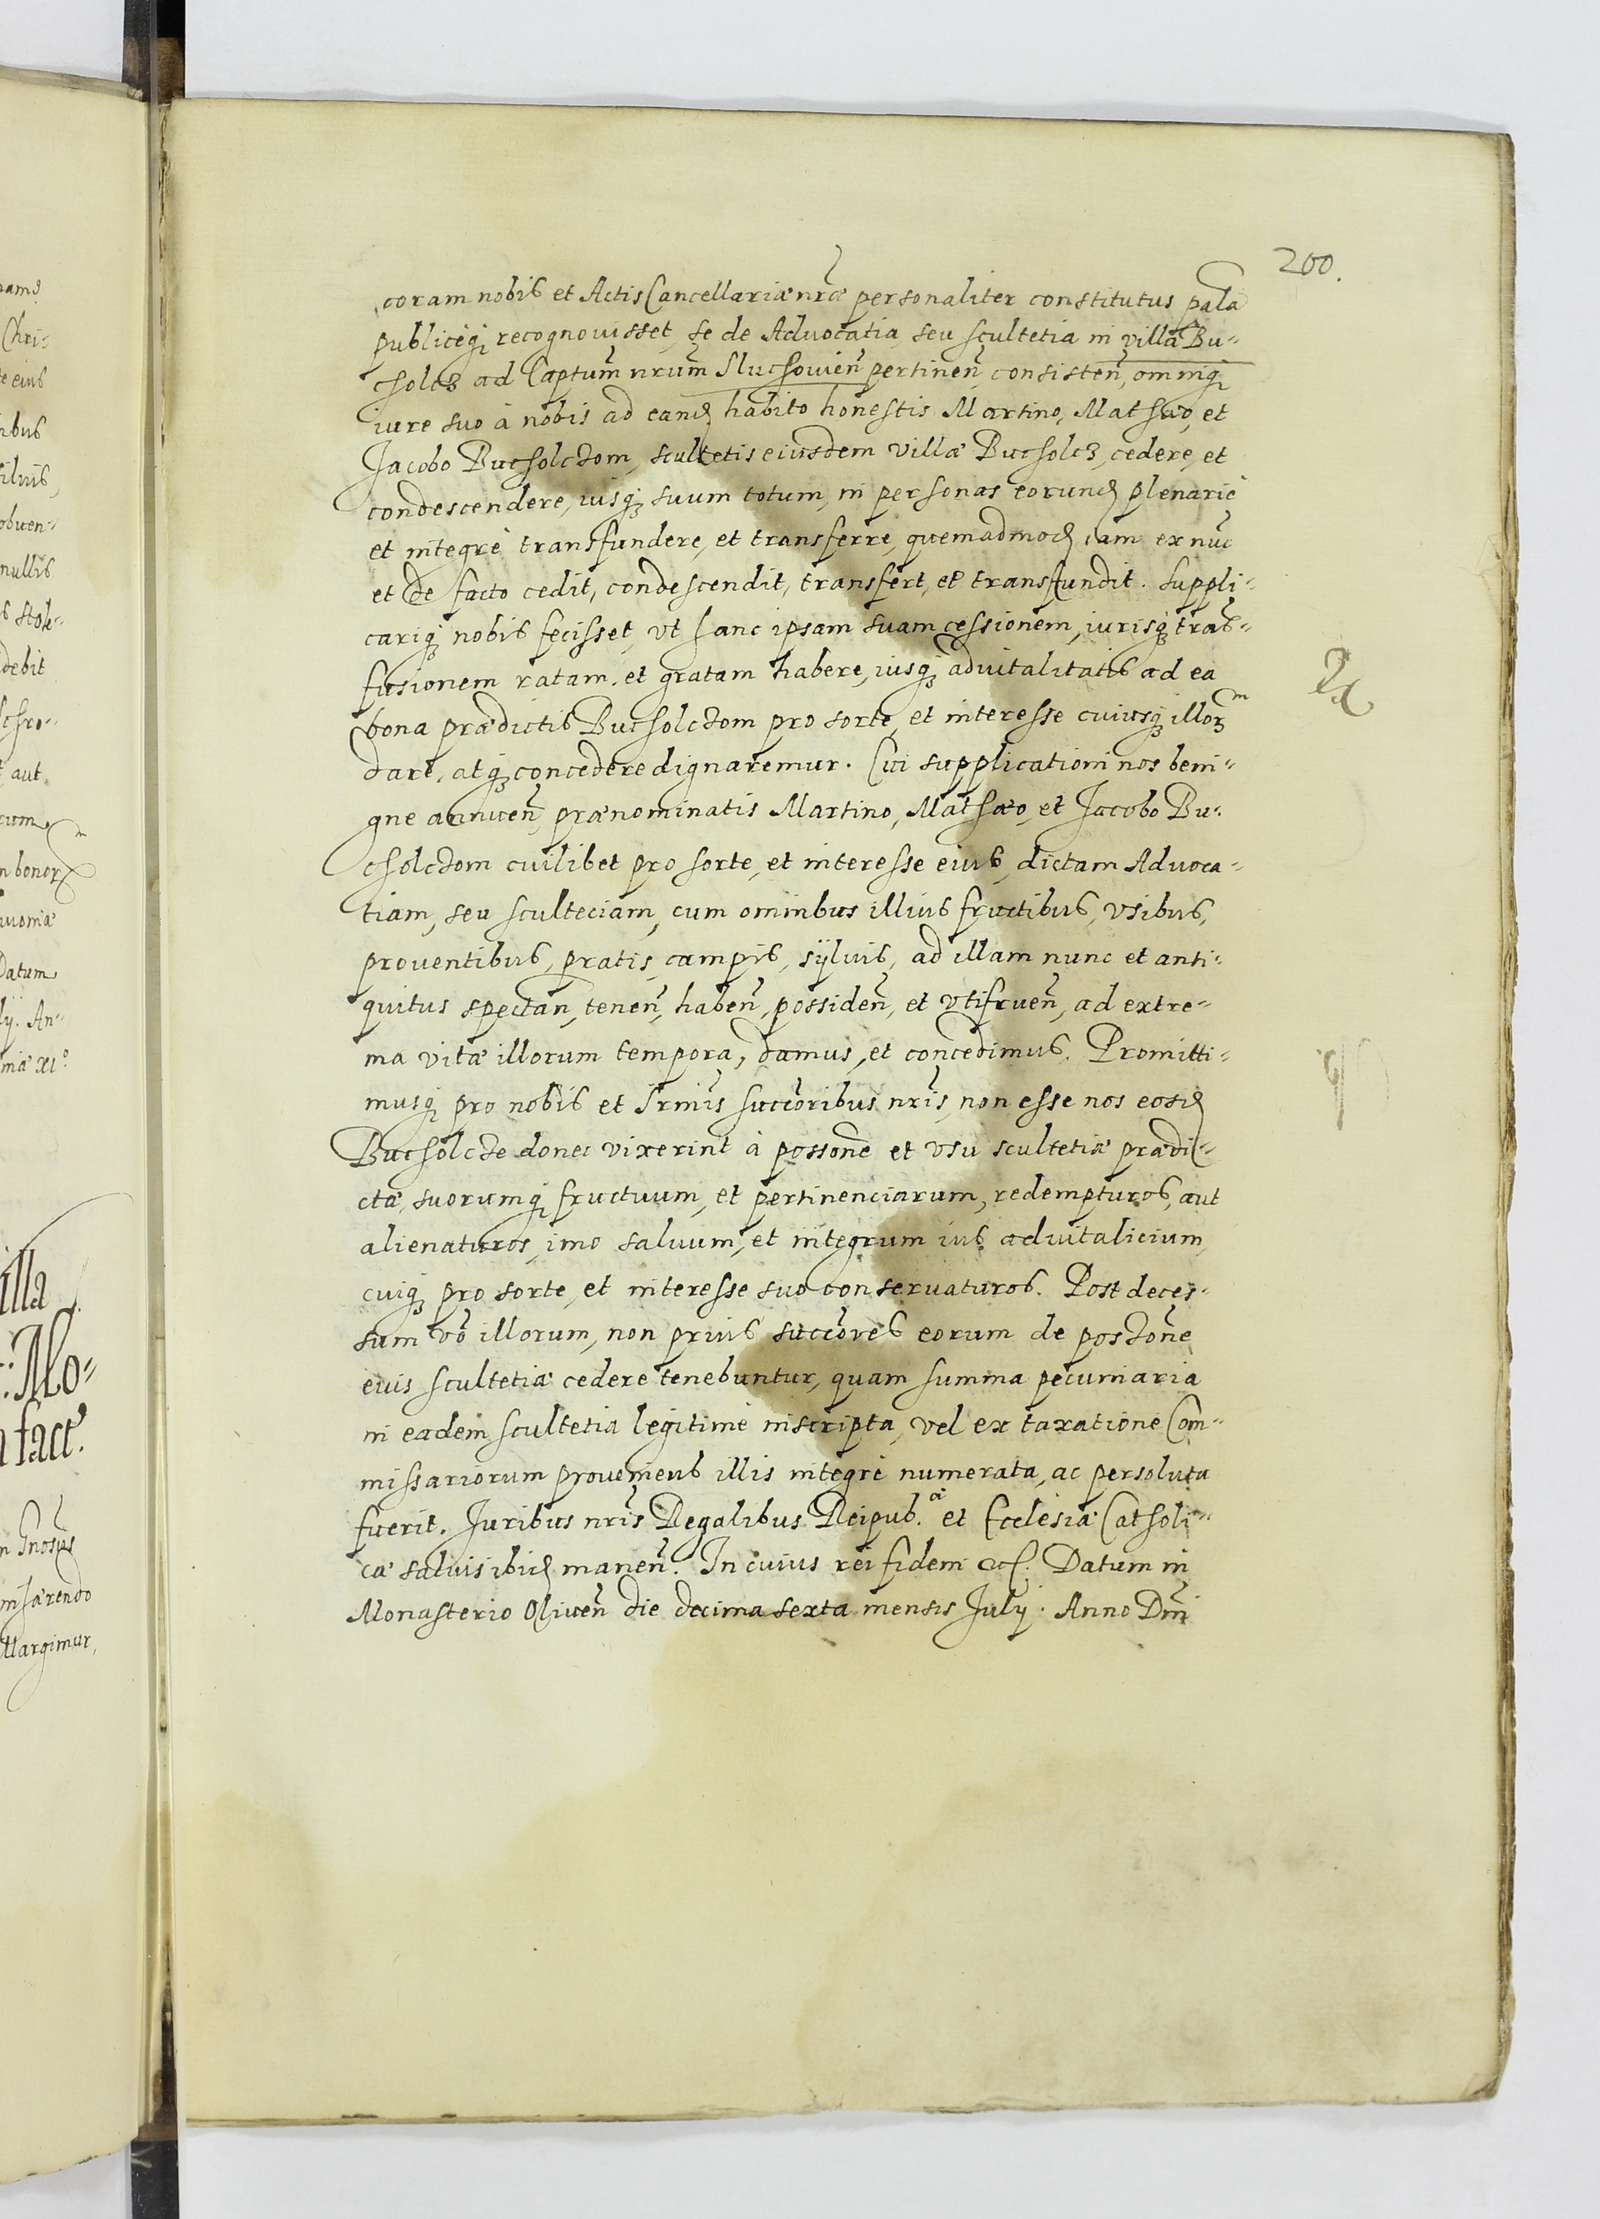 200.
coram nobis et Actis Cancellariæ nrœ personaliter constitutus pala
publiceqȝ recognouisset, se de Aduocatia seu scultetia in villa Bu-
cholcz ad Captum nrum Sluchouien pertinen, consisten, omniqȝ
iure suo à nobis ad eand habito honestis Martino, Mathæo, et
Jacobo Bucholcdom, scultetis eiusdem villæ Bucholcz, cedere, et
condescendere, iusqȝ suum totum, in personas eorund plenariè
et integrè transfundere, et transferre, quemadmod iam ex nuc
et de facto cedit, condescendit, transfert, et transfundit. Suppli-
cariqȝ nobis fecisset, vt hanc ipsam suam cessionem, iurisqȝ tras-
fusionem ratam, et gratam habere, iusqȝ aduitalitatis ad ea
bona prædictis Bucholcdom pro sorte, et interesse cuiusqȝ illorm
dare, atqȝ concedere dignaremur. Cui supplicationi nos beni-
gne annuen, prænominatis Martino, Mathæo, et Jacobo Bu-
cholcdom cuilibet pro sorte, et interesse eius, dictam Aduoca-
tiam, seu sculteciam, cum omnibus illius fructibus, vsibus,
prouentibus, pratis, campis, syluis, ad illam nunc et anti-
quitus spectan, tenen, haben, possiden, et vtifruen, ad extre-
ma vitæ illorum tempora, damus, et concedimus. Promitti-
musqȝ pro nobis et Srmis succoribus nris, non esse nos eosd
Bucholcde donec vixerint à possone et vsu scultetiæ prædi-
ctæ, suorumqȝ fructuum, et pertinenciarum, redempturos, aut
alienaturos, imo saluum, et integrum ius aduitalicium,
cuiqȝ pro sorte, et interesse suo conseruaturos. Post deces-
sum vō illorum, non prius succores eorum de posdone
euis scultetiæ cedere tenebuntur, quam summa pecuniaria
in eadem scultetia legitimè inscripta, vel ex taxatione Com-
missariorum proueniens illis integrè numerata, ac persoluta
fuerit. Juribus nris Regalibus Reipub.æ et Ecclesiæ Catholi-
cæ saluis ibid manen. In cuius rei fidem etc. Datum in
Monasterio Oliuen die decima sexta mensis July. Anno Dni